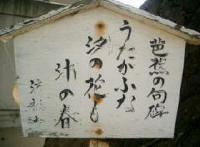 芭蕉の句碑
うたがふな
汐の花も
浦の春